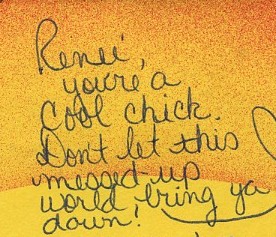 Reneé,
you're a
cool chick.
Don't let this
messed-up
world bring ya
down!